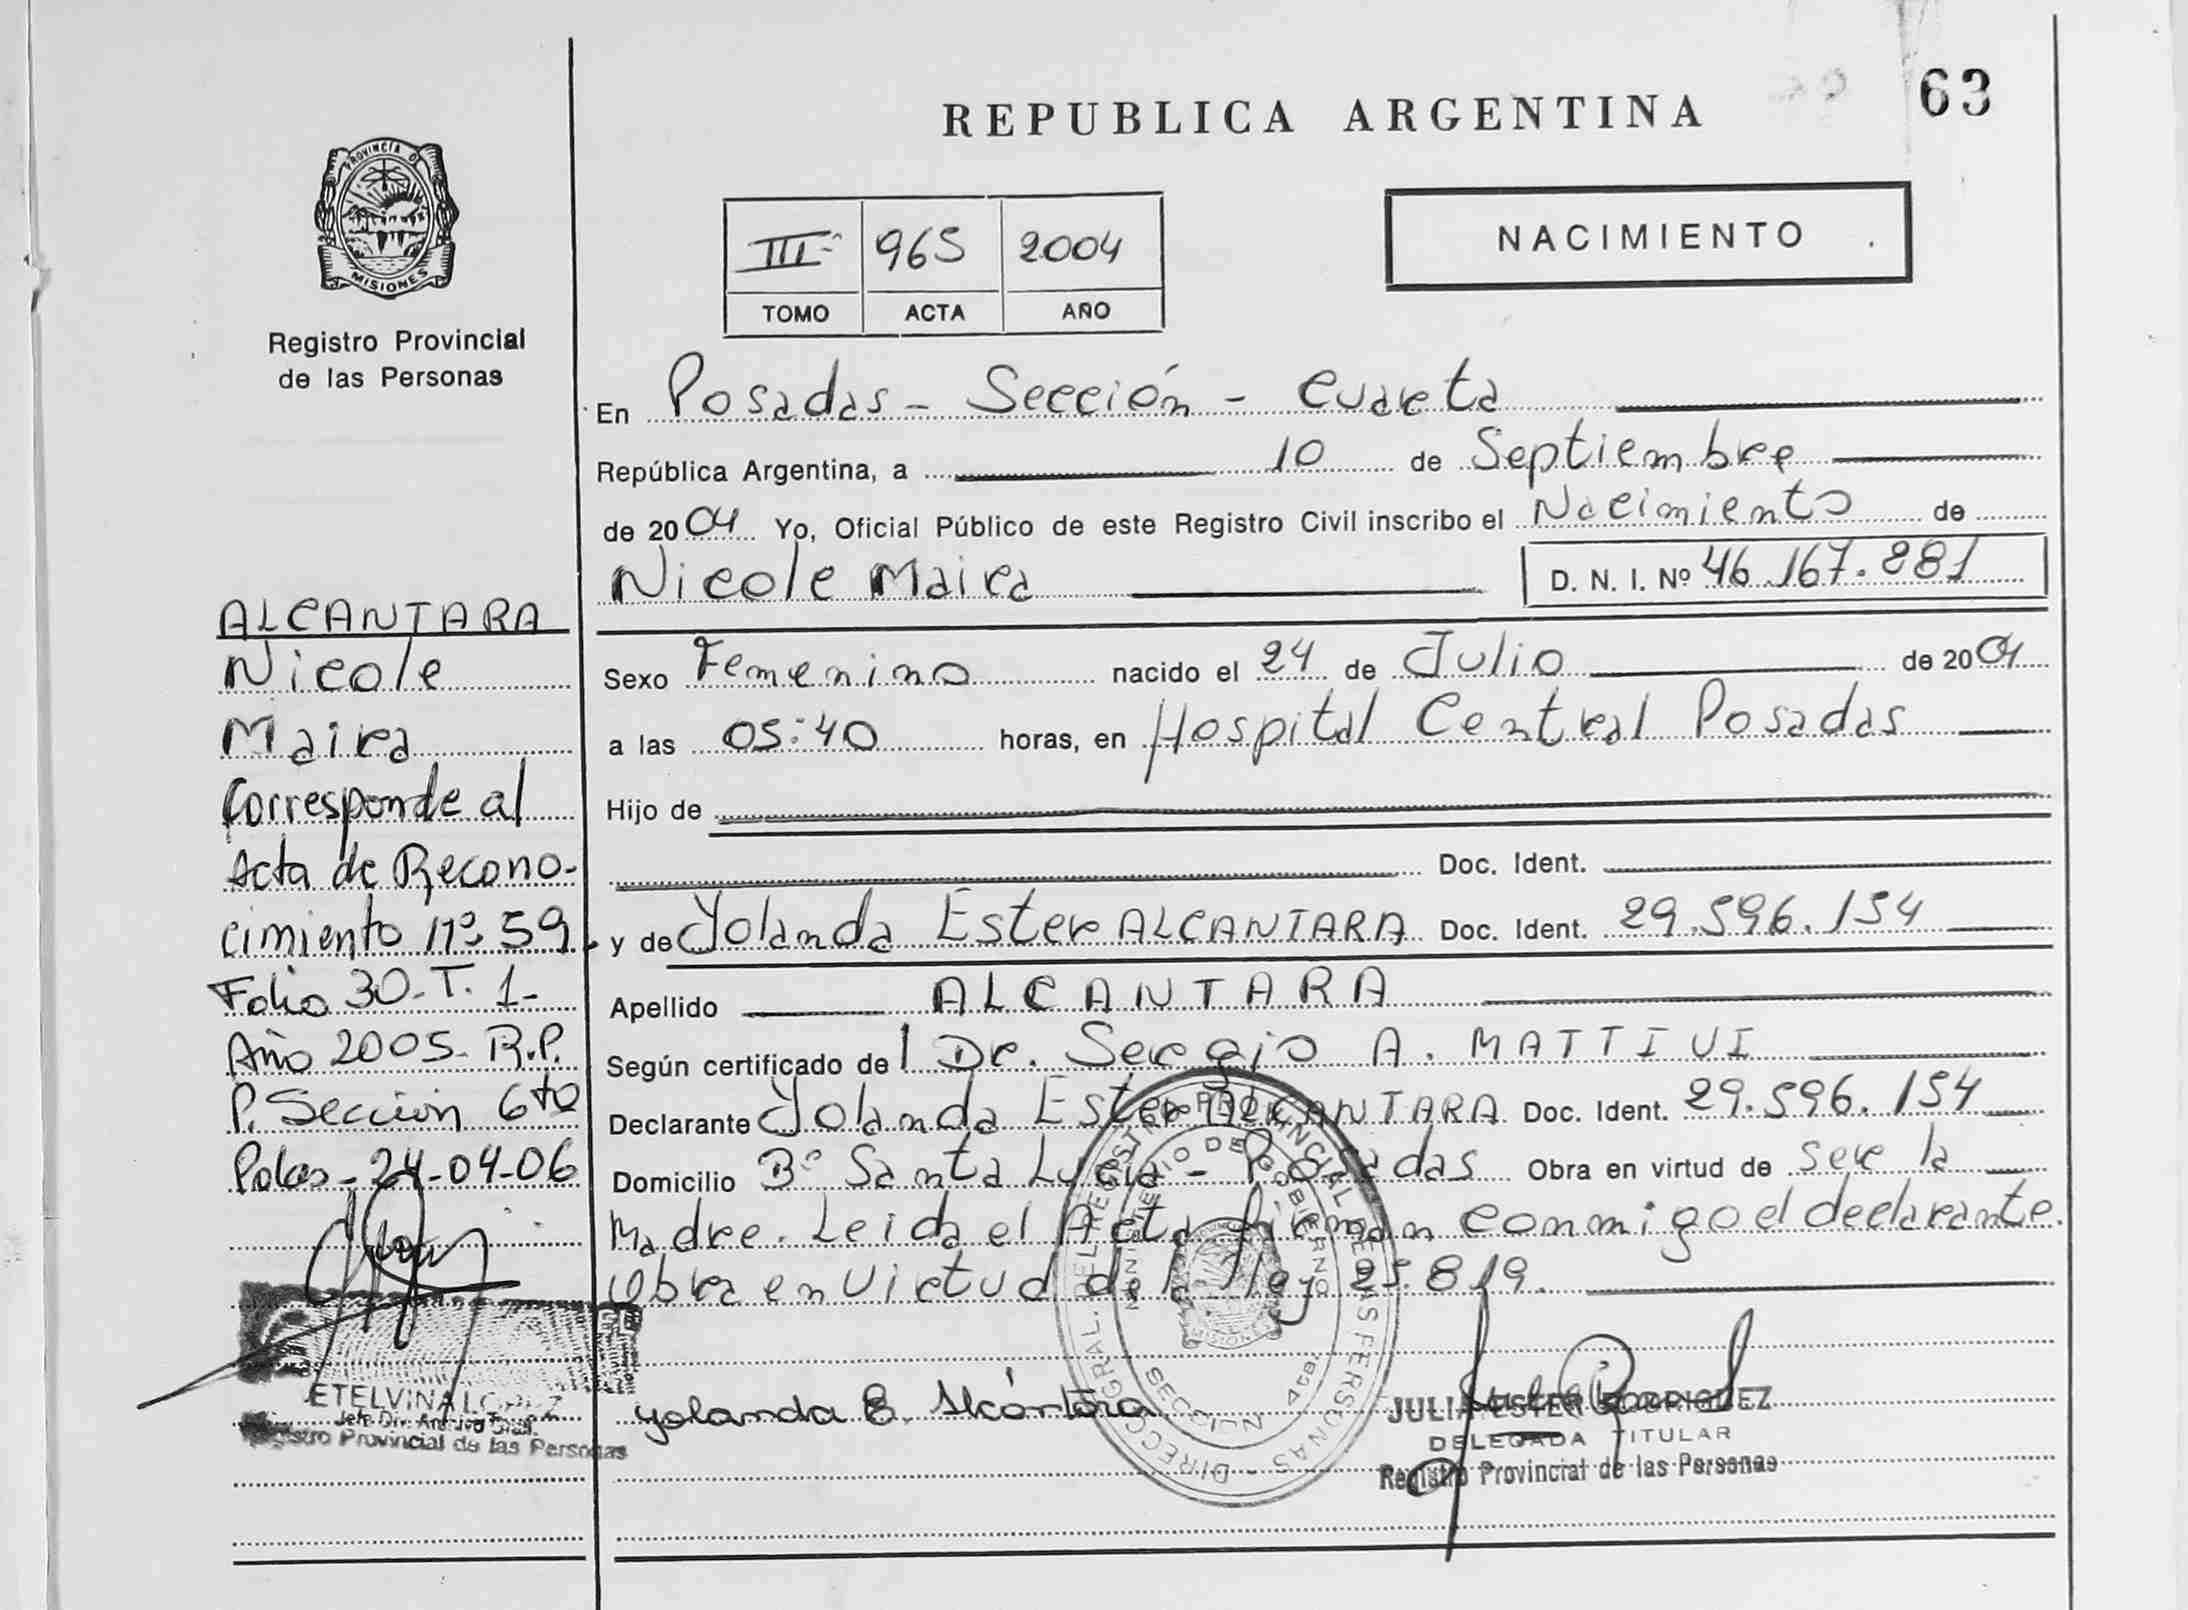 REPUBLICA ARGENTINA
63
PROVINCIA DE
MISIONES
Registro Provincial
de las Personas
III 965 2004
TOMO ACTA AÑO
NACIMIENTO
En Posadas - Sección - Cuarta
República Argentina, a 10 de Septiembre
de 2004 Yo, Oficial Público de este Registro Civil inscribo el Nacimiento de
Nicole Maira D. N. I. Nº 46.167.281
Sexo Femenino nacido el 24 de Julio de 2004
a las 05:40 horas, en Hospital Central Posadas
Hijo de
Doc. Ident.
y de Yolanda Ester ALCANTARA Doc. Ident. 29.596.154
Apellido ALCANTARA
Según certificado del Dr. Sergio A. MATTIVI
Declarante Yolanda Ester ALCANTARA Doc. Ident. 29.596.154
Domicilio Bº Santa Lucia - Posadas Obra en virtud de ser la
Madre. Leida el Acta firman conmigo el declarante.
Obra en Virtud de la ley 25.819.
Yolanda E. Alcántara
JULIA ESTER RODRIGUEZ
DELEGADA TITULAR
Registro Provincial de las Personas
DIRECC. GRAL. DEL REGISTRO PROVINCIAL DE LAS PERSONAS
MINISTERIO DE GOBIERNO
SECCION 4ta.
MISIONES
ALCANTARA
Nicole
Maira
Corresponde al
Acta de Recono-
cimiento nº 59
Folio 30-T. 1-
Año 2005- R.P.
P. Sección 6ta
Pdas-24-04-06
ETELVINA
Registro Provincial de las Personas